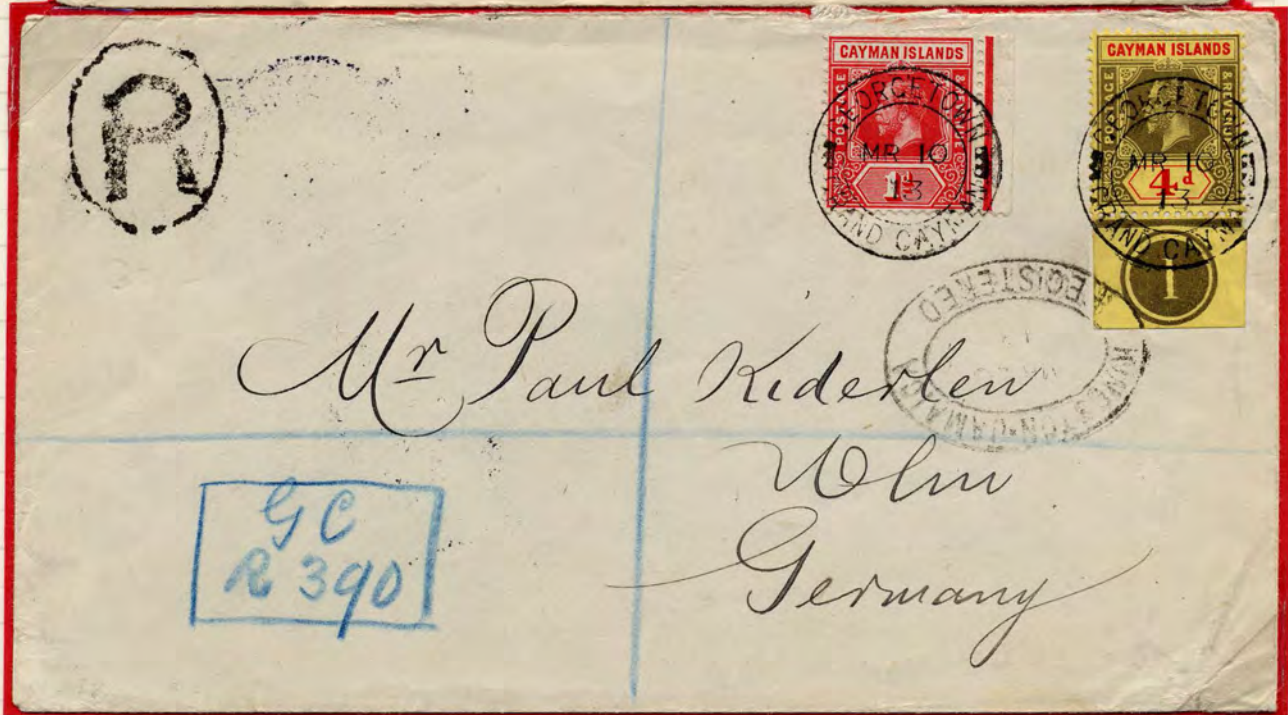 R
CAYMAN ISLANDS
POSTAGE & REVENUE
1d
GEORGETOWN
MR 10
13
GRAND CAYMAN
CAYMAN ISLANDS
POSTAGE & REVENUE
4d
GEORGETOWN
MR 10
13
GRAND CAYMAN
1
REGISTERED
KINGSTON·JAMAICA
Mr Paul Kiderlen
Ulm
Germany
GC
R 390